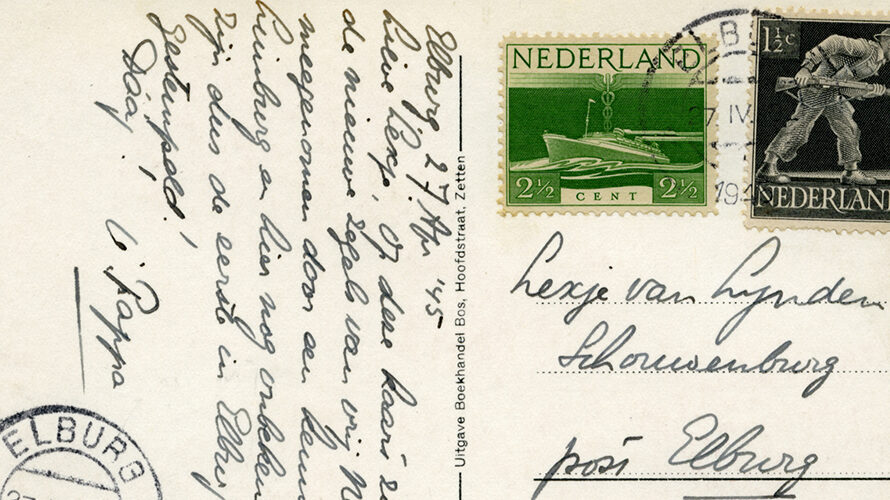 Elburg 27 Apr '45
Lieve Lexje, Op deze kaart zi
de nieuwe zegels van vrij N
meegenomen door een
Limburg en hier nog onbeken
zijn dus de eerste in Elbur
gestempeld!
Dáág,
Pappa
Uitgave Boekhandel Bos, Hoofdstraat, Zetten
NEDERLAND
2½ CENT 2½
LB
27 IV
194
1½c
NEDERLAN
Lexje van Lynden
Schouwenburg
post Elburg
ELBURG
27